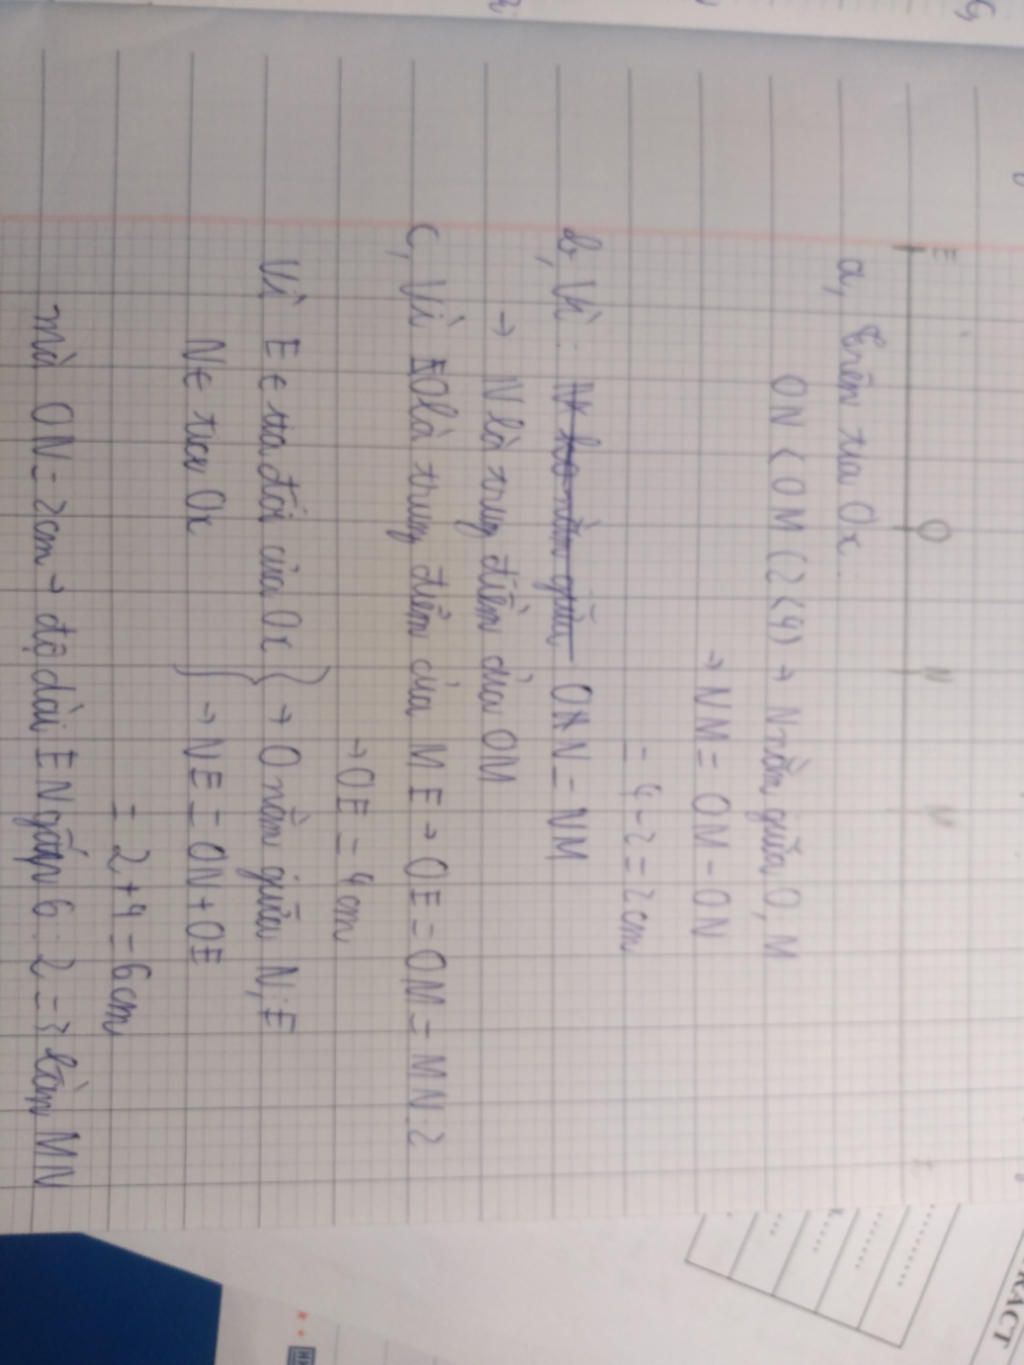 E O N
a, Trên tia Ox
ON < OM (2<4) → N nằm giữa O, M
→ NM = OM - ON
= 4-2 = 2cm
b, Vì: ON = NM
→ N là trung điểm của OM
c, Vì O là trung điểm của ME → OE = OM = MN.2
→ OE = 4cm
Vì E ∈ tia đối của Ox } → O nằm giữa N; E
N ∈ tia Ox } → NE = ON + OE
= 2+4 = 6cm
mà ON = 2cm → độ dài EN gấp 6:2 = 3 lần MN
RACT